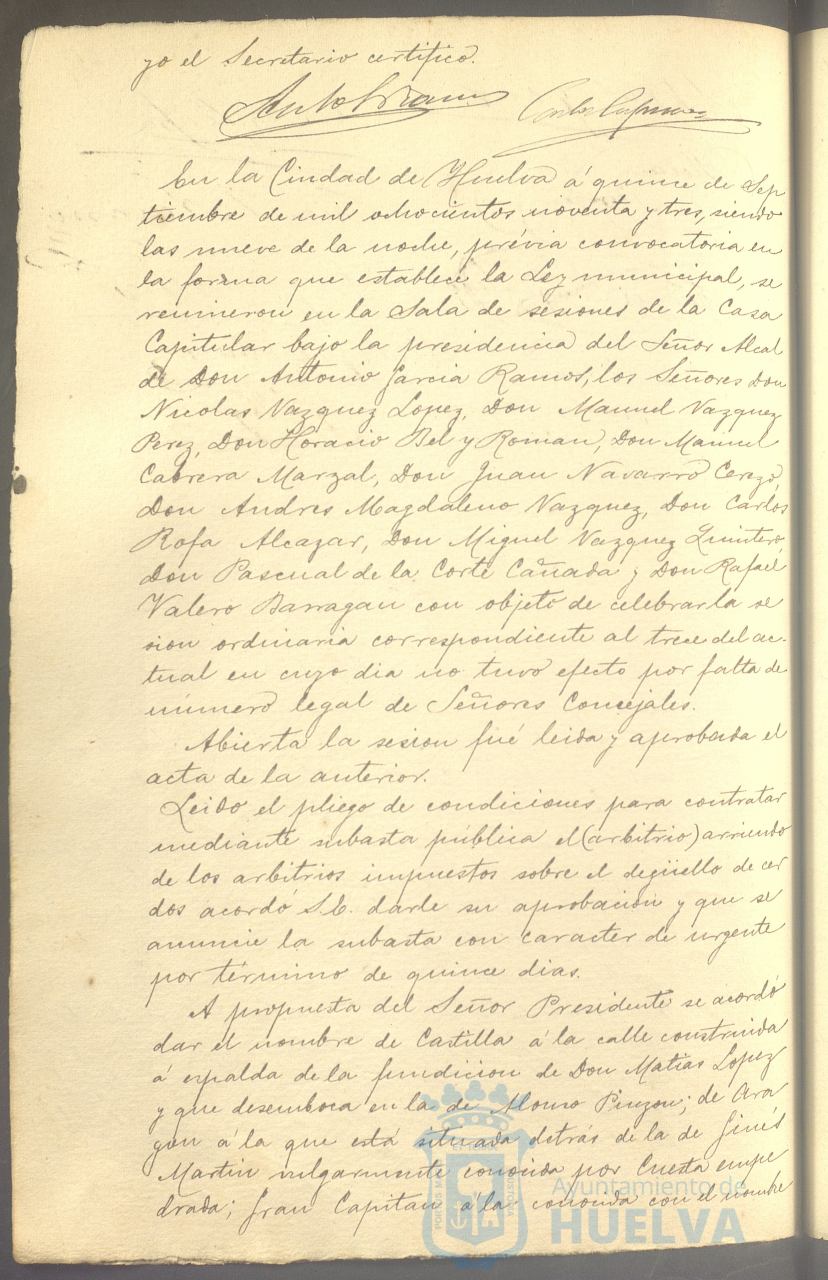 yo el Secretario certifico.
En la Ciudad de Huelva á quince de Sep
tiembre de mil ochocientos noventa y tres, siendo
las nueve de la noche, prévia convocatoria en
la forma que establece la Ley municipal, se
reunieron en la Sala de sesiones de la Casa
Capitular bajo la presidencia del Señor Alcal
de Don Antonio Garcia Ramos, los Señores Don
Nicolas Vazquez Lopez, Don Manuel Vazquez
Perez, Don Horacio Bel y Roman, Don Manuel
Cabrera Marzal, Don Juan Navarro Cerezo,
Don Andres Magdaleno Vazquez, Don Carlos
Rofa Alcazar, Don Miguel Vazquez Quintero,
Don Pascual de la Corte Cañada y Don Rafael
Valero Barragan con objeto de celebrar la se
sion ordinaria correspondiente al trece del ac-
tual en cuyo dia no tuvo efecto por falta de
número legal de Señores Concejales.
Abierta la sesion fué leida y aprobada el
acta de la anterior.
Leido el pliego de condiciones para contratar
mediante subasta pública el (arbitrio) arriendo
de los arbitrios impuestos sobre el degüello de cer
dos acordó S.E. darle su aprobacion y que se
anuncie la subasta con caracter de urgente
por término de quince dias.
A propuesta del Señor Presidente se acordó
dar el nombre de Castilla á la calle construida
á espalda de la fundicion de Don Matias Lopez
y que desemboca en la de Alonso Pinzon; de Ara
gon á la que está situada detrás de la de Ginés
Martin vulgarmente conocida por Cuesta empe
drada; Gran Capitan á la conocida con el nombre
Ayuntamiento de
HUELVA